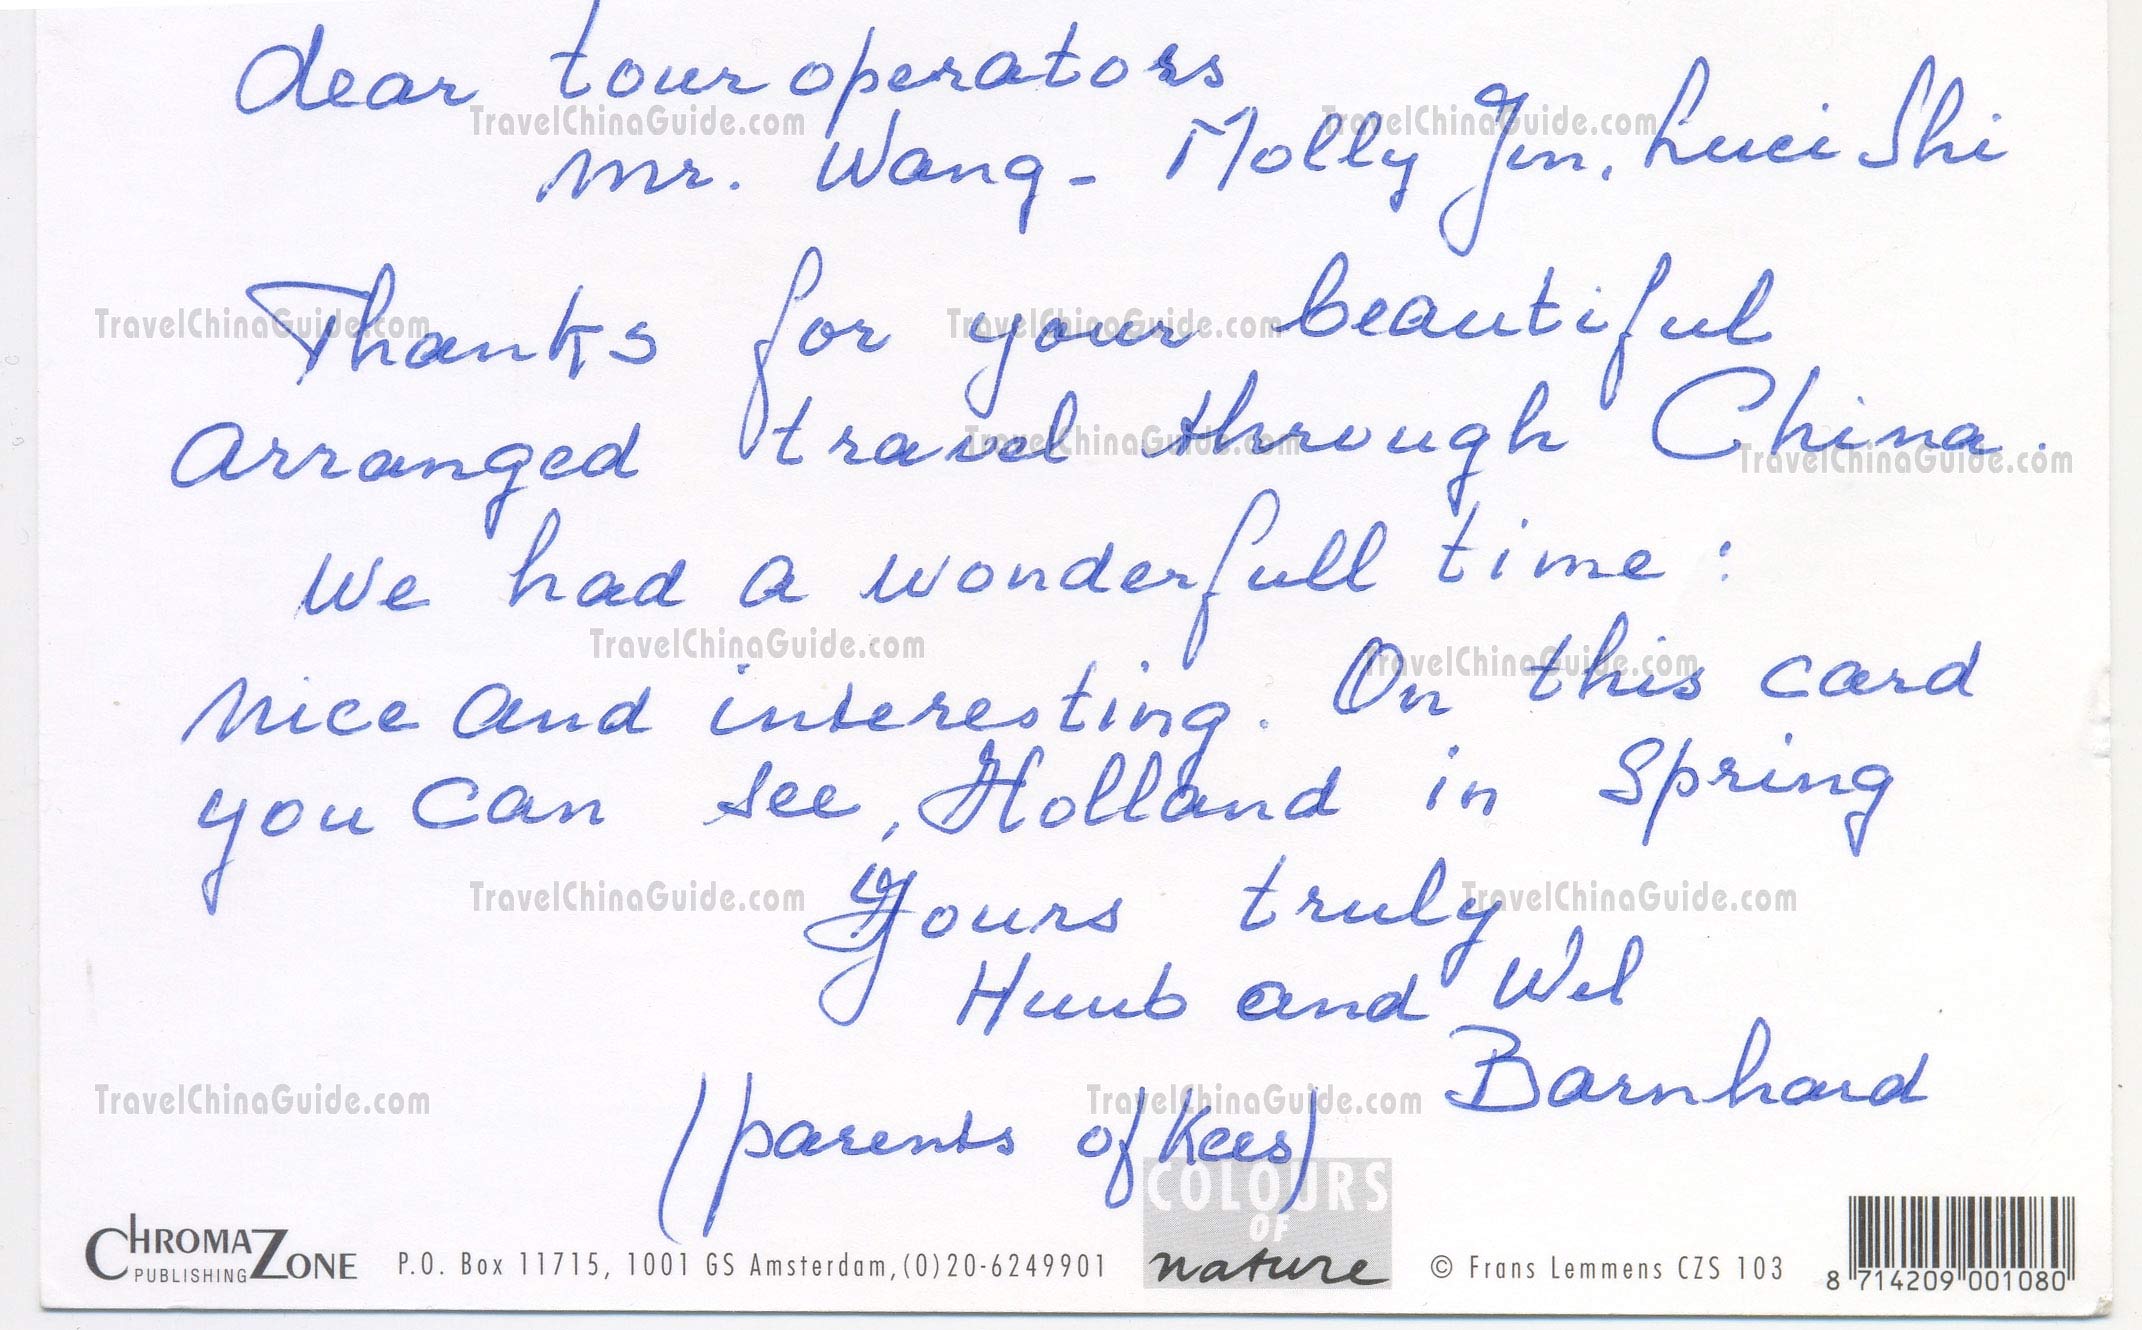 dear touroperators
TravelChinaGuide.com TravelChinaGuide.com
Mr. Wang - Molly Jin, Luci Shi
Thanks for your beautiful
TravelChinaGuide.com TravelChinaGuide.com
arranged travel through China.
TravelChinaGuide.com TravelChinaGuide.com
We had a wonderfull time:
TravelChinaGuide.com TravelChinaGuide.com
nice and interesting. On this card
you can see, Holland in Spring
TravelChinaGuide.com TravelChinaGuide.com
Yours truly
Huub and Wil
Barnhard
TravelChinaGuide.com TravelChinaGuide.com
(parents of Kees)
COLOURS
OF
nature
CHROMAZONE
PUBLISHING
P.O. Box 11715, 1001 GS Amsterdam,(0)20-6249901
© Frans Lemmens CZS 103
8 714209 001080